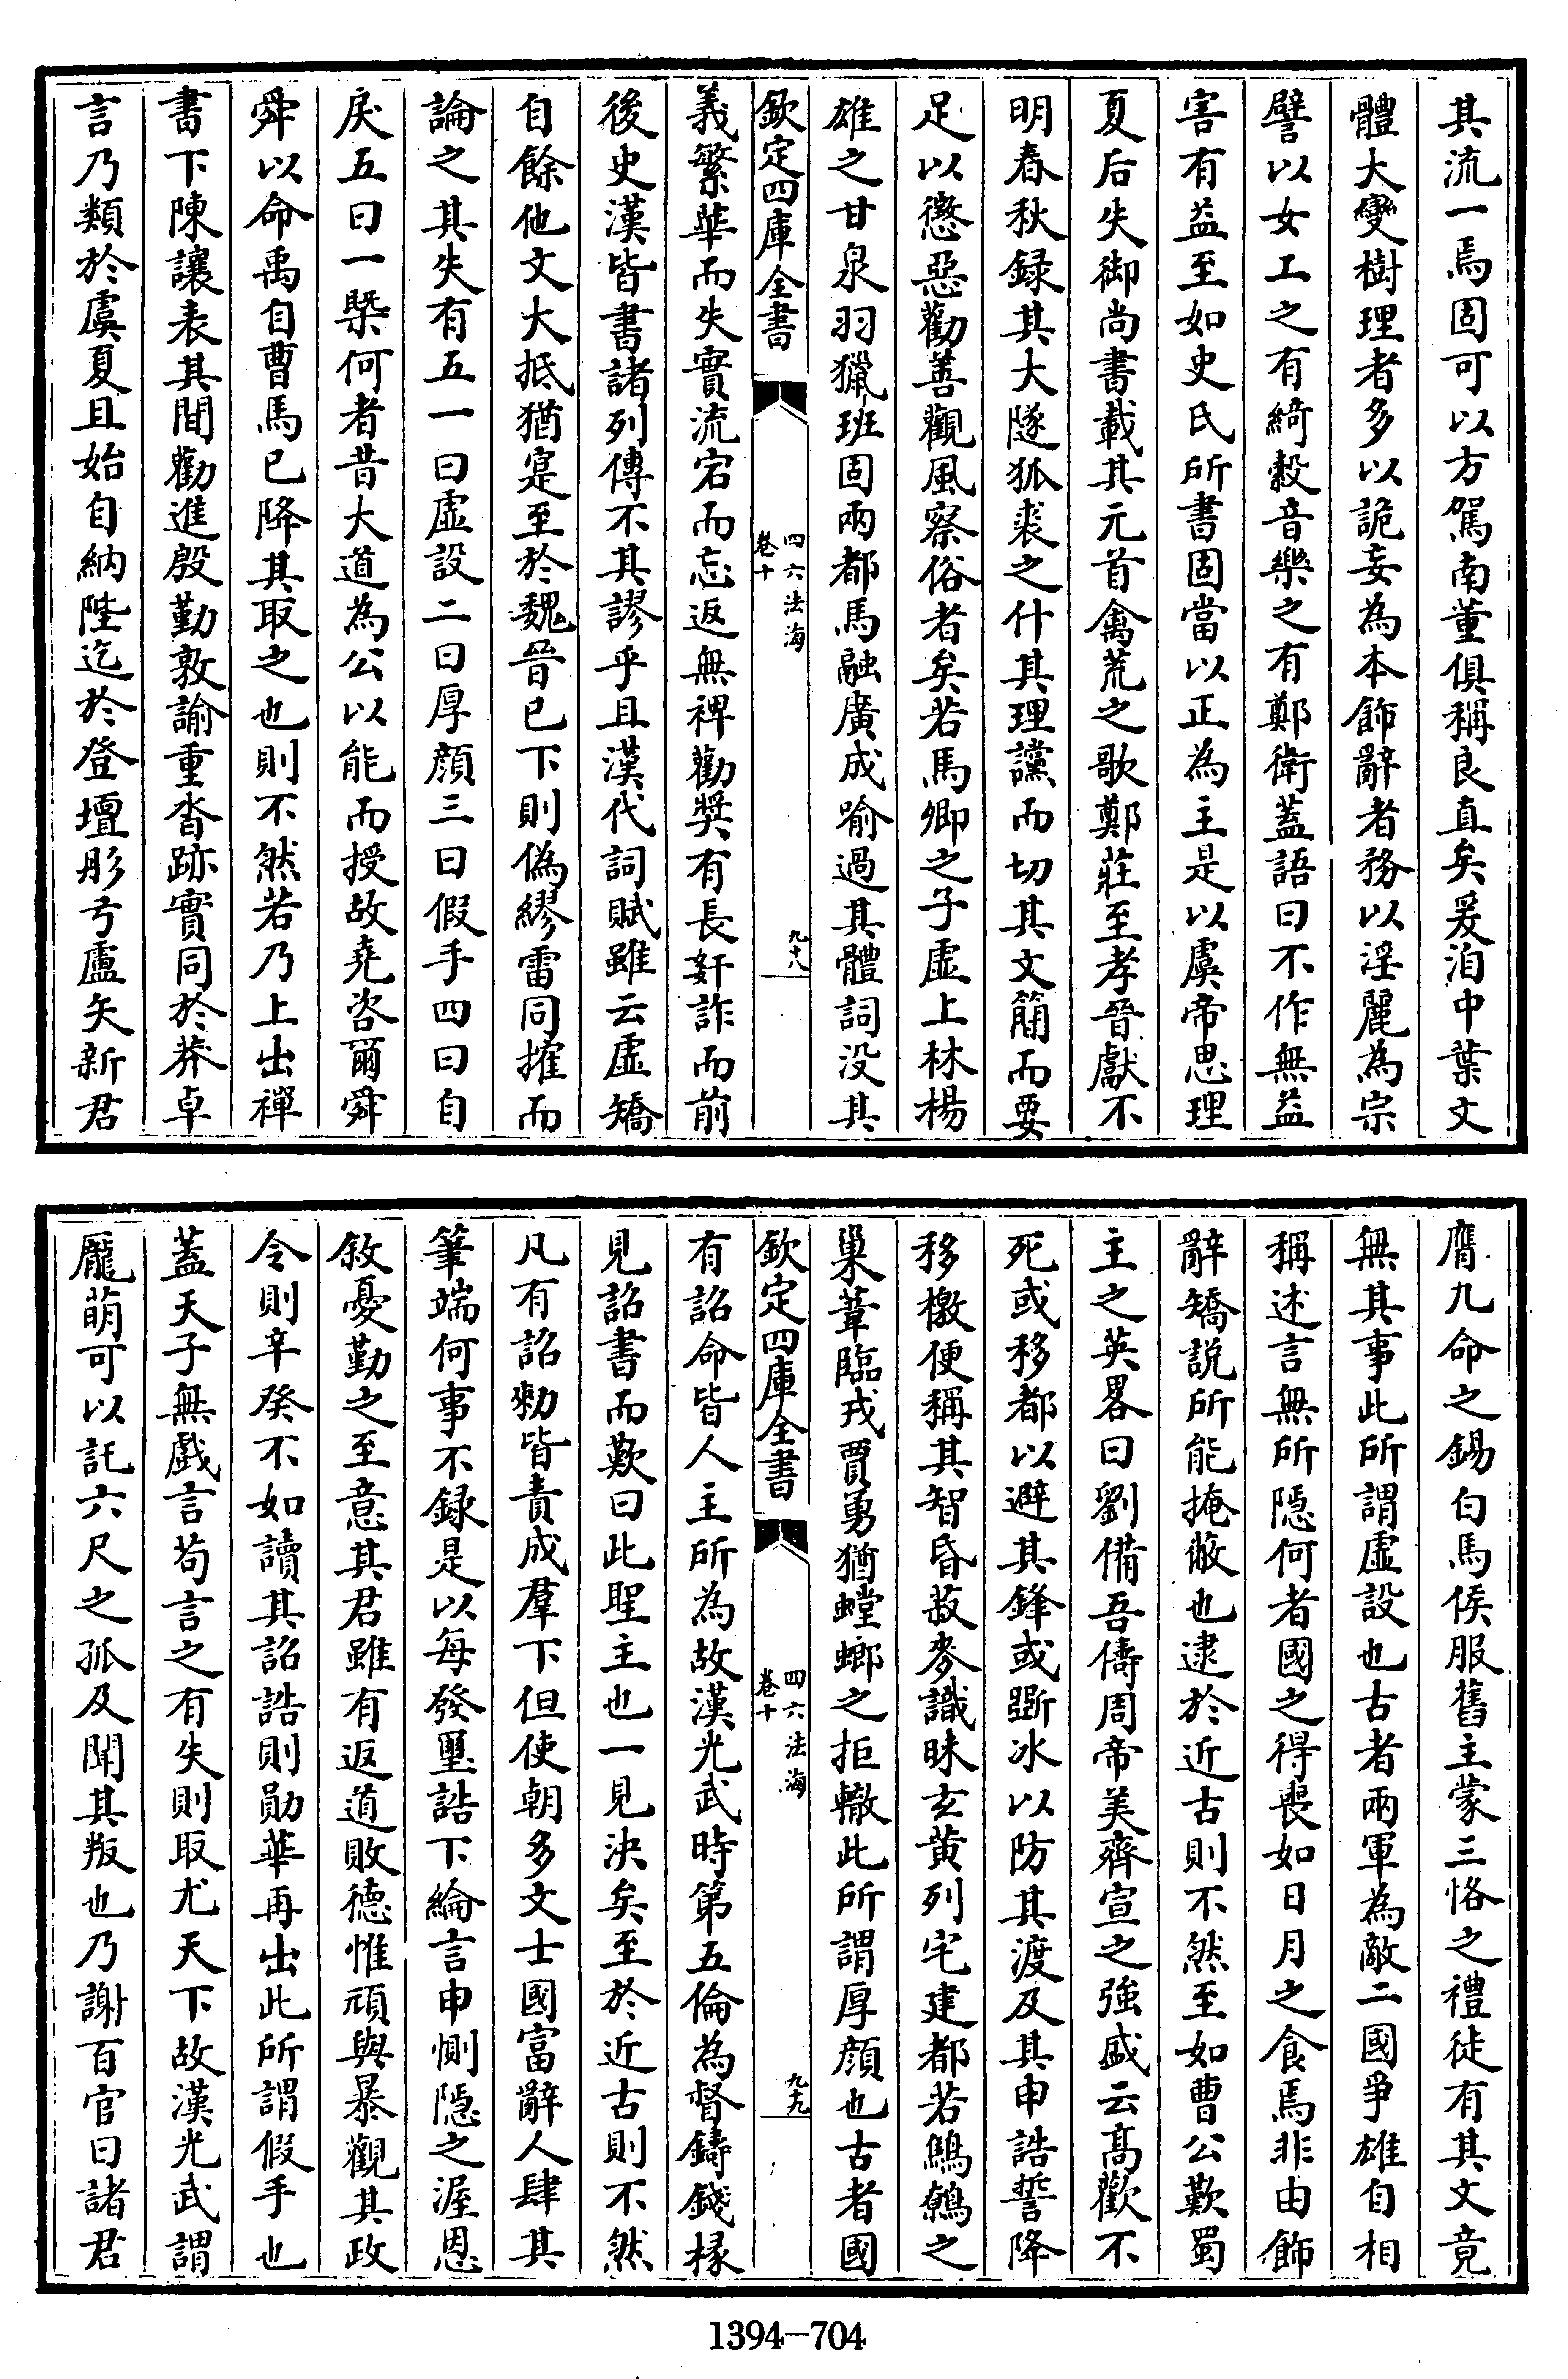 其流一焉固可以方駕南董俱稱良直矣爰洎中葉文
體大變樹理者多以詭妄為本飾辭者務以淫麗為宗
譬以女工之有綺縠音樂之有鄭衛蓋語曰不作無益
害有益至如史氏所書固當以正為主是以虞帝思理
夏后失御尚書載其元首禽荒之歌鄭莊至孝晉獻不
明春秋録其大隧狐裘之什其理讜而切其文簡而要
足以懲惡勸善觀風察俗者矣若馬卿之子虛上林楊
雄之甘泉羽獵班固兩都馬融廣成喻過其體詞没其
欽定四庫全書
四六法海
卷十
九十八
義繁華而失實流宕而忘返無裨勸奬有長奸詐而前
後史漢皆書諸列傳不其謬乎且漢代詞賦雖云虛矯
自餘他文大抵猶寔至於魏晉已下則偽繆雷同搉而
論之其失有五一曰虛設二曰厚顔三曰假手四曰自
戾五曰一槩何者昔大道為公以能而授故堯咨爾舜
舜以命禹自曹馬已降其取之也則不然若乃上出禪
書下陳讓表其間勸進殷勤敦諭重沓跡實同於莽卓
言乃類於虞夏且始自納陛迄於登壇彤弓盧矢新君
膺九命之錫白馬侯服舊主蒙三恪之禮徒有其文竟
無其事此所謂虛設也古者兩軍為敵二國爭雄自相
稱述言無所隱何者國之得喪如日月之食焉非由飾
辭矯説所能掩蔽也逮於近古則不然至如曹公歎蜀
主之英畧曰劉備吾儔周帝美齊宣之強盛云高歡不
死或移都以避其鋒或斲冰以防其渡及其申誥誓降
移檄便稱其智昏菽麥識昧玄黄列宅建都若鷦鷯之
巢葦臨戎賈勇猶螳螂之拒轍此所謂厚顔也古者國
欽定四庫全書
四六法海
卷十
九十九
有詔命皆人主所為故漢光武時第五倫為督鑄錢掾
見詔書而歎曰此聖主也一見決矣至於近古則不然
凡有詔勑皆責成羣下但使朝多文士國富辭人肆其
筆端何事不録是以每發璽誥下綸言申惻隱之渥恩
敘憂勤之至意其君雖有返道敗德惟頑與暴觀其政
令則辛癸不如讀其詔誥則勛華再出此所謂假手也
蓋天子無戲言苟言之有失則取尤天下故漢光武謂
龐萌可以託六尺之孤及聞其叛也乃謝百官曰諸君
1394-704